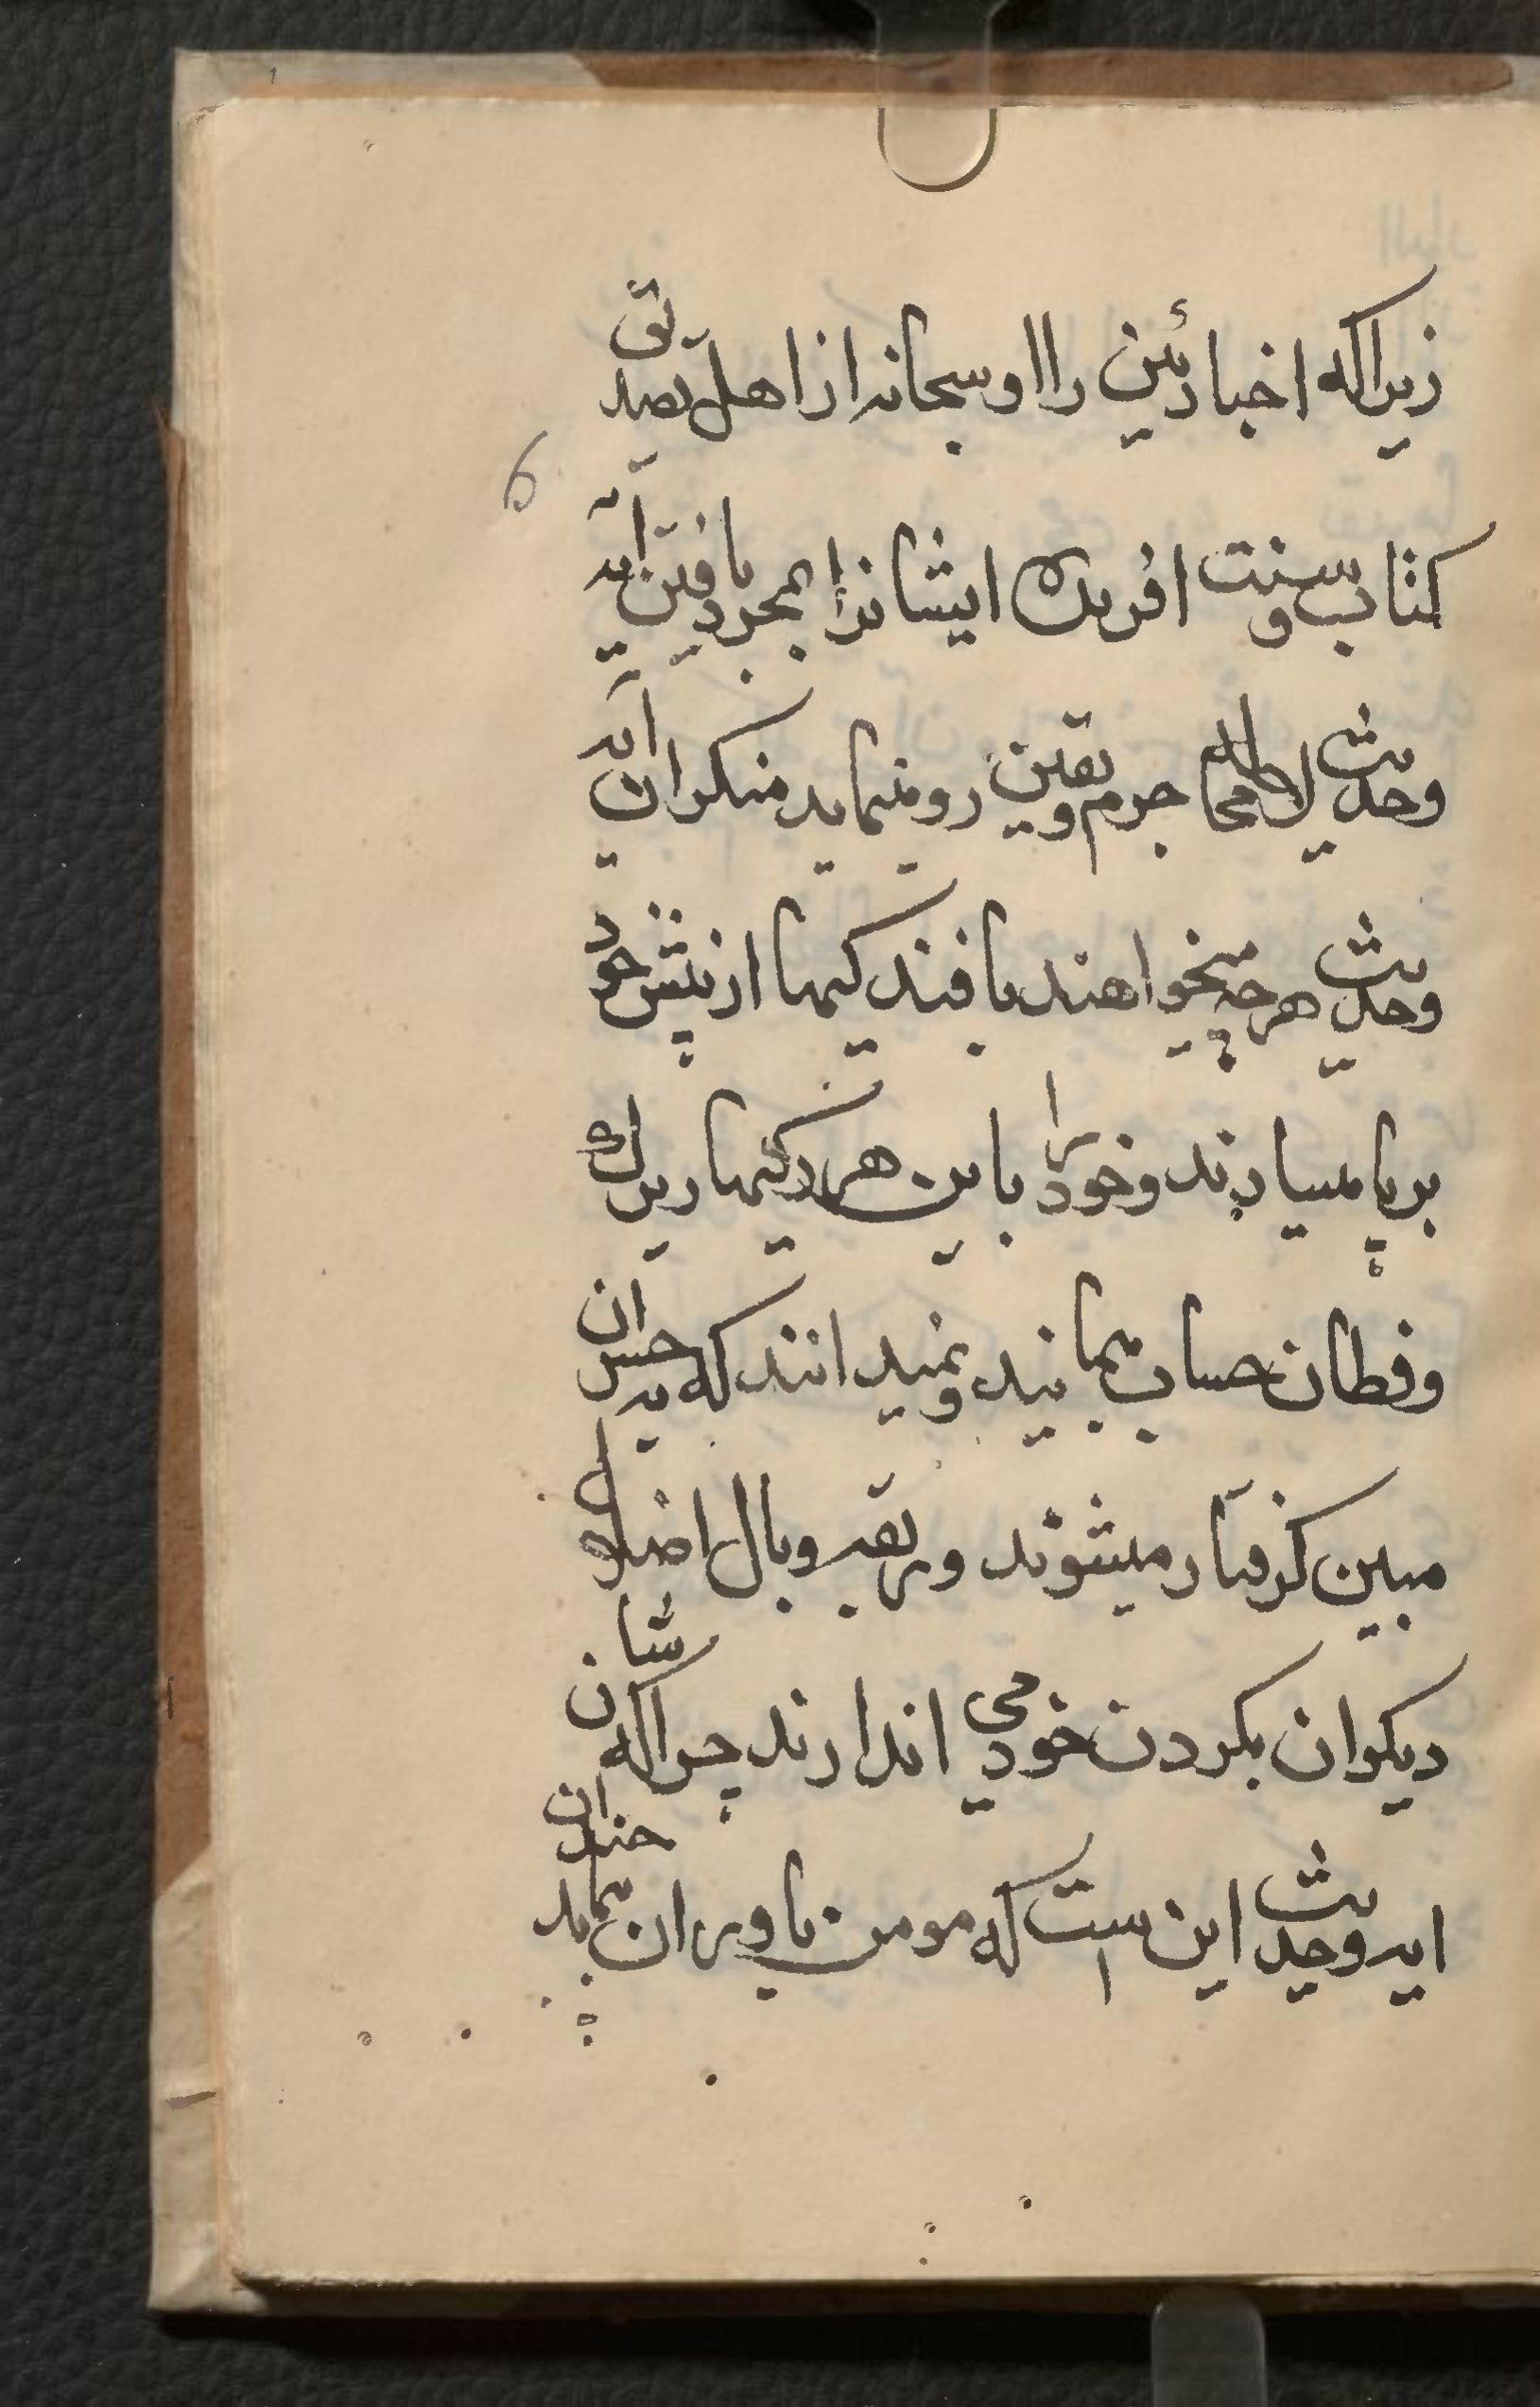 زیراکه اخبار ئین را او سبحانه از اهل تصدیق
کتاب و سنت افریده ایشانرا بمجرد یافتن آیه
وحدیث لا محاله جرم و یقین رو مینماید منکران آیه
وحدیث هرچه میخواهند یافند کیها از پیش خود
برپا میسازند و خود را باین هرد کیها زیرک
وفطان حساب بمانید و نمیدانند که به خسران
مبین کرفتار میشوند و ربقه وبال اضلال
دیکران بکردن خود می اندازند چراکه شان
ایه وحدیث این ست که مومن باو بران بماید خندان
6